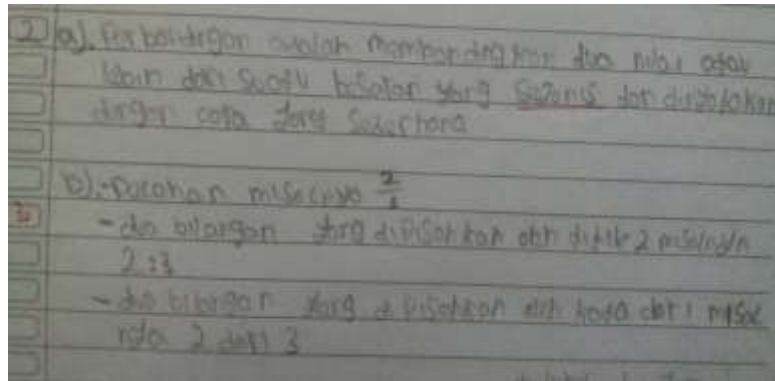 2 a). Perbandingan adalah membandingkan dua nilai atau
lebih dari suatu besaran yang sejenis dan dinyatakan
dengan cara yang sederhana
b). - pecahan misalnya 2
- dua bilangan yang dipisahkan oleh titik 2 misalnya
2:3
- dua bilangan yang dipisahkan oleh kata dari misal
nya 2 dari 3